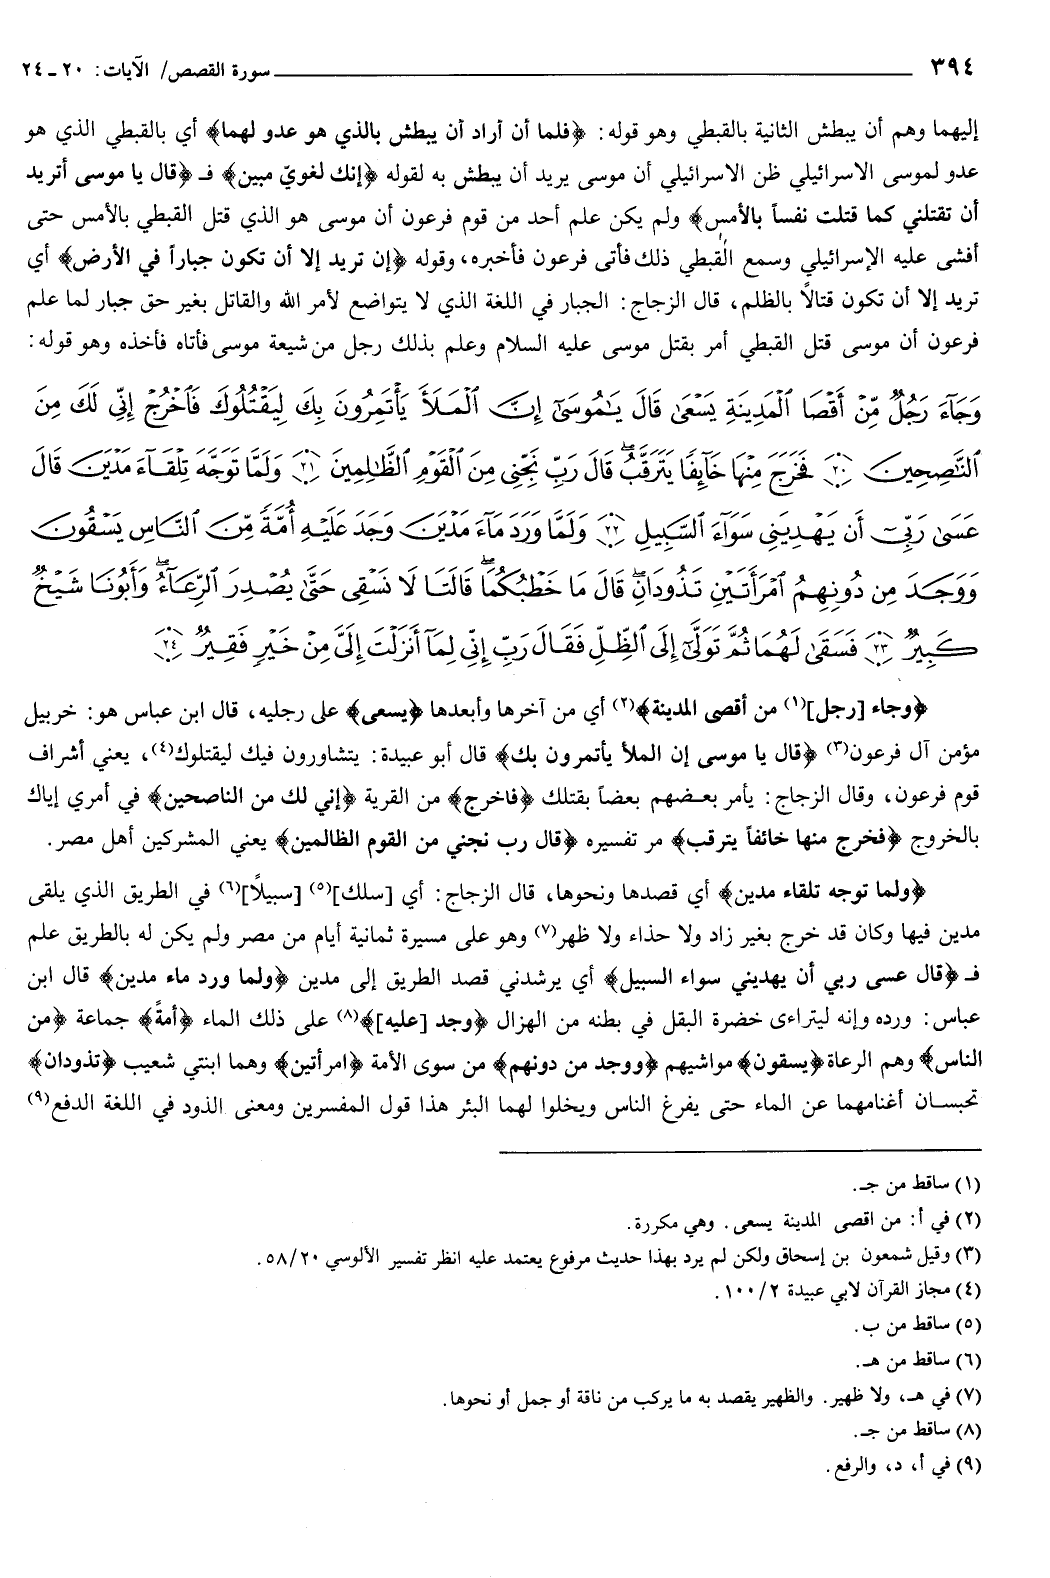 ٣٩٤ سورة القصص/ الآيات: ٢٠ ـ ٢٤
إليهما وهم أن يبطش الثانية بالقبطي وهو قوله: ﴿فلما أن أراد أن يبطش بالذي هو عدو لهما﴾ أي بالقبطي الذي هو
عدو لموسى الاسرائيلي ظن الاسرائيلي أن موسى يريد أن يبطش به لقوله ﴿إنك لغويّ مبين﴾ فـ ﴿قال يا موسى أتريد
أن تقتلني كما قتلت نفساً بالأمس﴾ ولم يكن علم أحد من قوم فرعون أن موسى هو الذي قتل القبطي بالأمس حتى
أفشى عليه الإسرائيلي وسمع القبطي ذلك فأتى فرعون فأخبره، وقوله ﴿إن تريد إلا أن تكون جباراً في الأرض﴾ أي
تريد إلا أن تكون قتالاً بالظلم، قال الزجاج: الجبار في اللغة الذي لا يتواضع لأمر الله والقاتل بغير حق جبار لما علم
فرعون أن موسى قتل القبطي أمر بقتل موسى عليه السلام وعلم بذلك رجل من شيعة موسى فأتاه فأخذه وهو قوله:
وَجَآءَ رَجُلٌ مِّنْ أَقْصَا ٱلْمَدِينَةِ يَسْعَىٰ قَالَ يَٰمُوسَىٰٓ إِنَّ ٱلْمَلَأَ يَأْتَمِرُونَ بِكَ لِيَقْتُلُوكَ فَٱخْرُجْ إِنِّى لَكَ مِنَ
ٱلنَّٰصِحِينَ ٢٠ فَخَرَجَ مِنْهَا خَآئِفًا يَتَرَقَّبُۖ قَالَ رَبِّ نَجِّنِى مِنَ ٱلْقَوْمِ ٱلظَّٰلِمِينَ ٢١ وَلَمَّا تَوَجَّهَ تِلْقَآءَ مَدْيَنَ قَالَ
عَسَىٰ رَبِّىٓ أَن يَهْدِيَنِى سَوَآءَ ٱلسَّبِيلِ ٢٢ وَلَمَّا وَرَدَ مَآءَ مَدْيَنَ وَجَدَ عَلَيْهِ أُمَّةً مِّنَ ٱلنَّاسِ يَسْقُونَ
وَوَجَدَ مِن دُونِهِمُ ٱمْرَأَتَيْنِ تَذُودَانِۖ قَالَ مَا خَطْبُكُمَاۖ قَالَتَا لَا نَسْقِى حَتَّىٰ يُصْدِرَ ٱلرِّعَآءُۖ وَأَبُونَا شَيْخٌ
كَبِيرٌ ٢٣ فَسَقَىٰ لَهُمَا ثُمَّ تَوَلَّىٰٓ إِلَى ٱلظِّلِّ فَقَالَ رَبِّ إِنِّى لِمَآ أَنزَلْتَ إِلَىَّ مِنْ خَيْرٍ فَقِيرٌ ٢٤
﴿وجاء [رجل](١) من أقصى المدينة﴾(٢) أي من آخرها وأبعدها ﴿يسعى﴾ على رجليه، قال ابن عباس هو: خربيل
مؤمن آل فرعون(٣) ﴿قال يا موسى إن الملأ يأتمرون بك﴾ قال أبو عبيدة: يتشاورون فيك ليقتلوك(٤)، يعني أشراف
قوم فرعون، وقال الزجاج: يأمر بعضهم بعضاً بقتلك ﴿فاخرج﴾ من القرية ﴿إني لك من الناصحين﴾ في أمري إياك
بالخروج ﴿فخرج منها خائفاً يترقب﴾ مر تفسيره ﴿قال رب نجني من القوم الظالمين﴾ يعني المشركين أهل مصر.
﴿ولما توجه تلقاء مدين﴾ أي قصدها ونحوها، قال الزجاج: أي [سلك](٥) [سبيلاً](٦) في الطريق الذي يلقى
مدين فيها وكان قد خرج بغير زاد ولا حذاء ولا ظهر(٧) وهو على مسيرة ثمانية أيام من مصر ولم يكن له بالطريق علم
فـ ﴿قال عسى ربي أن يهديني سواء السبيل﴾ أي يرشدني قصد الطريق إلى مدين ﴿ولما ورد ماء مدين﴾ قال ابن
عباس: ورده وإنه ليتراءى خضرة البقل في بطنه من الهزال ﴿وجد [عليه]﴾(٨) على ذلك الماء ﴿أمةً﴾ جماعة ﴿من
الناس﴾ وهم الرعاة ﴿يسقون﴾ مواشيهم ﴿ووجد من دونهم﴾ من سوى الأمة ﴿امرأتين﴾ وهما ابنتي شعيب ﴿تذودان﴾
تحبسان أغنامهما عن الماء حتى يفرغ الناس ويخلوا لهما البئر هذا قول المفسرين ومعنى الذود في اللغة الدفع(٩)
(١) ساقط من جـ.
(٢) في أ: من اقصى المدينة يسعى. وهي مكررة.
(٣) وقيل شمعون بن إسحاق ولكن لم يرد بهذا حديث مرفوع يعتمد عليه انظر تفسير الألوسي ٥٨/٢٠.
(٤) مجاز القرآن لابي عبيدة ١٠٠/٢.
(٥) ساقط من ب.
(٦) ساقط من هـ.
(٧) في هـ، ولا ظهير. والظهير يقصد به ما يركب من ناقة أو جمل أو نحوها.
(٨) ساقط من جـ.
(٩) في أ، د، والرفع.